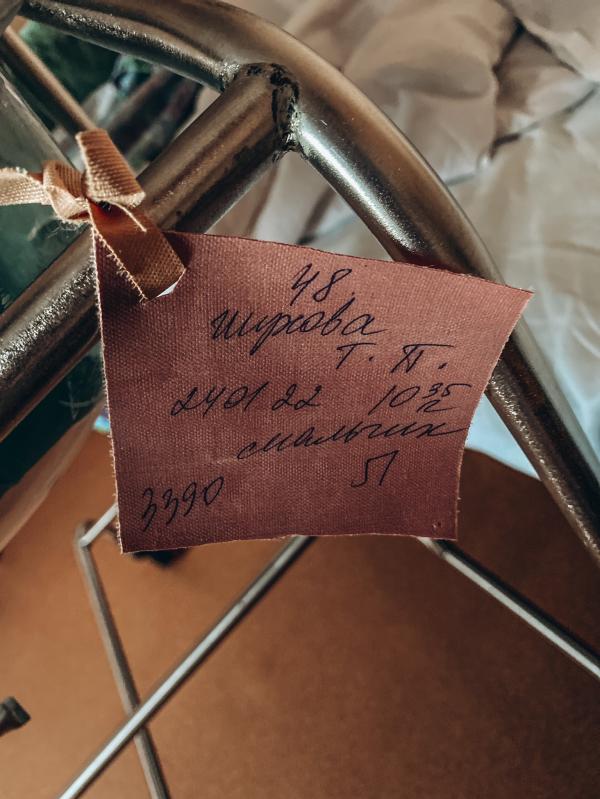 48.
Шухова
Т. П.
240122 10 35
мальчик
3390 51